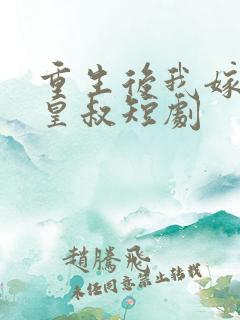 重生後我嫁
皇叔短劇
趙騰飛
未經同意禁止轉載